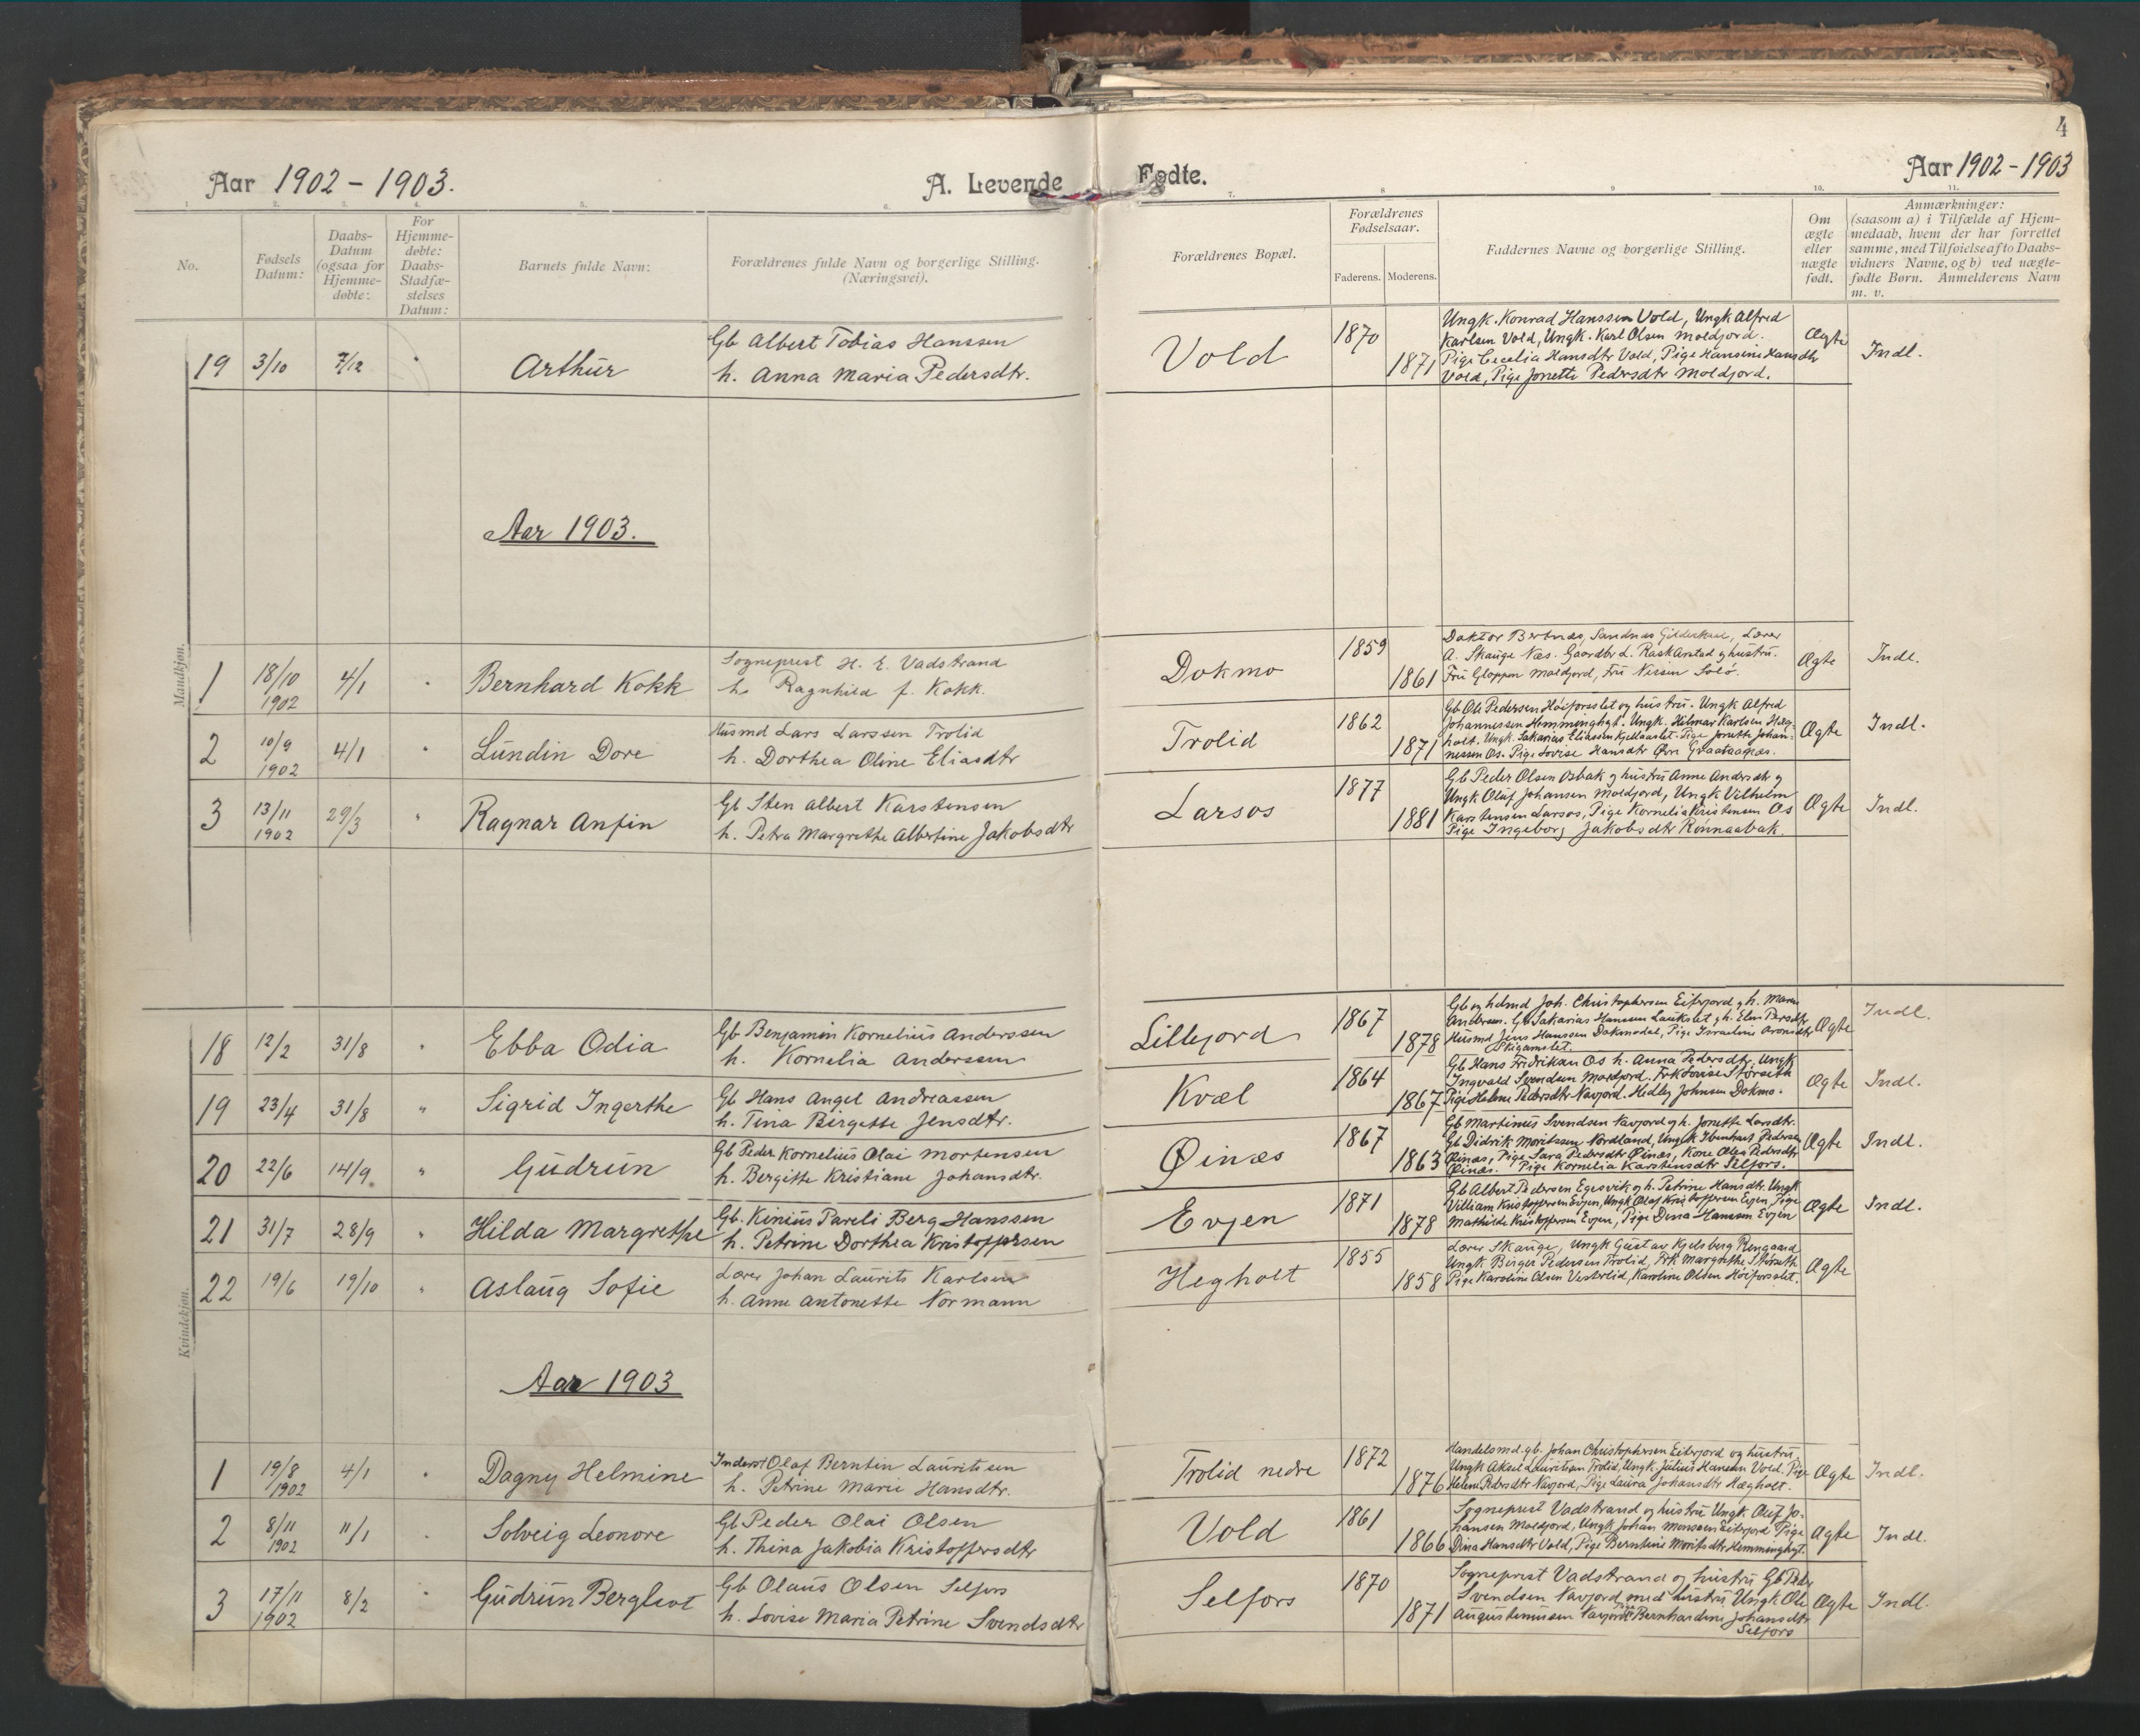 4
Aar 1902 – 1903.
A. Levende Fødte.
Aar 1902 – 1903
1. 2. 3. 4. 5. 6. 7. 8 9 10. 11.
No.
Fødsels Datum:
Daabs-Datum (ogsaa for Hjemme-døbte:
For Hjemme-døbte: Daabs-Stadfæ-stelses Datum:
Barnets fulde Navn:
Forældrenes fulde Navn og borgerlige Stilling.
(Næringsvei).
Forældrenes Bopæl.
Forældrenes Fødselsaar.
Faderens. Moderens.
Faddernes Navne og borgerlige Stilling.
Om ægte eller uægte født.
Anmærkninger:
(saasom a) i Tilfælde af Hjem-
medaab, hvem der har forrettet
samme, med Tilføielse af to Daabs-
vidners Navne, og b) ved uægte-
fødte Børn. Anmelderens Navn
m. v.
Mandkjøn.
19 3/10 7/12 " Arthur
Gb Albert Tobias Hanssen
h. Anna Maria Pedersdtr.
Vold 1870 1871
Ungk. Konrad Hanssen Vold, Ungk Alfred
Karlsen Vold, Ungk. Karl Olsen Moldjord.
Pige Cecelia Hansdtr Vold, Pige Hansine Hansdtr
Vold, Pige Jonette Pedersdtr Moldjord.
Ægte Indl.
Aar 1903.
1 18/10 1902 4/1 " Bernhard Kokk
Sogneprest H. E. Vadstrand
h. Ragnhild f. Kokk.
Dokmo 1859 1861
Doktor Bertnæs, Sandnæs Gildeskaal, Lærer
A. Skauge Næs. Gaardbr L. Rask Arstad og hustru.
Fru Gloppen Moldjord, Fru Nissen Solø.
Ægte Indl.
2 10/9 1902 4/1 " Lundin Dore
Husmd Lars Larssen Trolid
h. Dorthea Oline Eliasdtr
Trolid 1862 1871
Gb Ole Pedersen Høiforslet og hustru. Ungk Alfred
Johannessen Hemminghyt. Ungk. Hilmar Karlsen Hæg-
holt. Ungk. Sakarias Eliassen Kjellaaslet. Pige Jonette Johan-
nessen Os. Pige Lovise Hansdtr Øvre Graataanæs.
Ægte Indl.
3 13/11 1902 29/3 " Ragnar Anfin
Gb Sten Albert Karstensen
h. Petra Margrethe Albertine Jakobsdtr
Larsos 1877 1881
Gb Peder Olsen Osbak og hustru Anne Andersdtr og
Ungk Oluf Johansen Moldjord, Ungk Vilhelm
Karstensen Larsos, Pige Kornelia Kristensen Os
Pige Ingeborg Jakobsdtr Rønnaabak.
Ægte Indl.
Kvindekjøn.
18 12/2 31/8 " Ebba Odia
Gb Benjamin Kornelius Anderssen
h. Kornelia Andersen
Lillejord 1867 1878
Gb og hdmd Joh. Christophersen Eiterjord og h. Maren
Andersen. Gb Sakarias Hanssen Laukslet og h. Elen Persdtr
Husmd Jens Hanssen Dokmodal, Pige Israeline Aronsdtr
Skigamslet.
Ægte Indl.
19 23/4 31/8 " Sigrid Ingerthe
Gb Hans Angel Andreassen
h. Tina Birgitte Jensdtr.
Kvæl 1864 1867
Gb Hans Fridriksen Os h. Anna Pedersdtr, Ungk
Ingvald Svendsen Moldjord. Frk Lovise Størseth
Pige Helene Pedersdtr Navjord. Hedley Johnsen Dokmo.
Ægte Indl.
20 22/6 14/9 " Gudrun
Gb Peder Kornelius Olai Mortensen
h. Bergitte Kristiane Johansdtr.
Øinæs 1867 1863
Gb Martinus Svendsen Navjord og h. Jonette Larsdtr.
Gb Didrik Moritssen Nordland, Ungk Ibenhart Pedersen
Øinæs, Pige Sara Pedersdtr Øinæs, Kone Olea Pedersdtr
Øinæs. Pige Kornelia Karstensdtr Selfors.
Ægte Indl.
21 31/7 28/9 " Hilda Margrethe
Gb. Kinius Pareli Berg Hanssen
h. Petrine Dorthea Kristoffersen
Evjen 1871 1878
Gb Albert Pedersen Egesvik og h. Petrine Hansdtr. Ungk
Villiam Kristoffersen Evjen, Ungk Olaf Kristoffersen Evjen, Pige
Mathilde Kristoffersen Evjen, Pige Dina Hanssen Evjen
Ægte Indl.
22 19/6 19/10 " Aslaug Sofie
Lærer Johan Laurits Karlsen
h. Anne Antonette Normann
Hegholt 1855 1858
Lærer Skauge, Ungk Gustav Kjelsberg Rengaard
Ungk Birger Pedersen Trolid, Frk Margrethe Størseth
Pige Karoline Olsen Vesterlid, Karoline Olsen Høiforslet.
Ægte
Aar 1903
1 19/8 1902 4/1 " Dagny Helmine
Inderst Olaf Berntin Lauritssen
h. Petrine Marie Hansdtr.
Trolid nedre 1872 1876
Handelsmd. gb. Johan Christophersen Eiterjord og hustru,
Ungk Aksel Lauritssen Trolid, Ungk. Julius Hanssen Vold. Pige
Helene Pedersdtr Navjord, Pige Laura Johansdtr Hægholt.
Ægte Indl.
2 8/11 1902 11/1 " Solveig Leonore
Gb Peder Olai Olsen
h. Thina Jakobia Kristoffersdtr
Vold 1861 1866
Sogneprest Vadstrand og hustru Ungk. Oluf Jo-
hansen Moldjord, Ungk Johan Monssen Eiterjord Pige
Dina Hansdtr Vold, Pige Berntine Moritsdtr Hemminghyt.
Ægte Indl.
3 17/11 1902 8/2 " Gudrun Bergliot
Gb Olaus Olsen Selfors
h. Lovise Maria Petrine Svendsdtr
Selfors 1870 1871
Sogneprest Vadstrand og hustru Gb Peder
Svendsen Navjord med hustru Ungk Ole
Augustinussen Navjord Pige Bernhardine Johansdtr
Selfors
Ægte Indl.